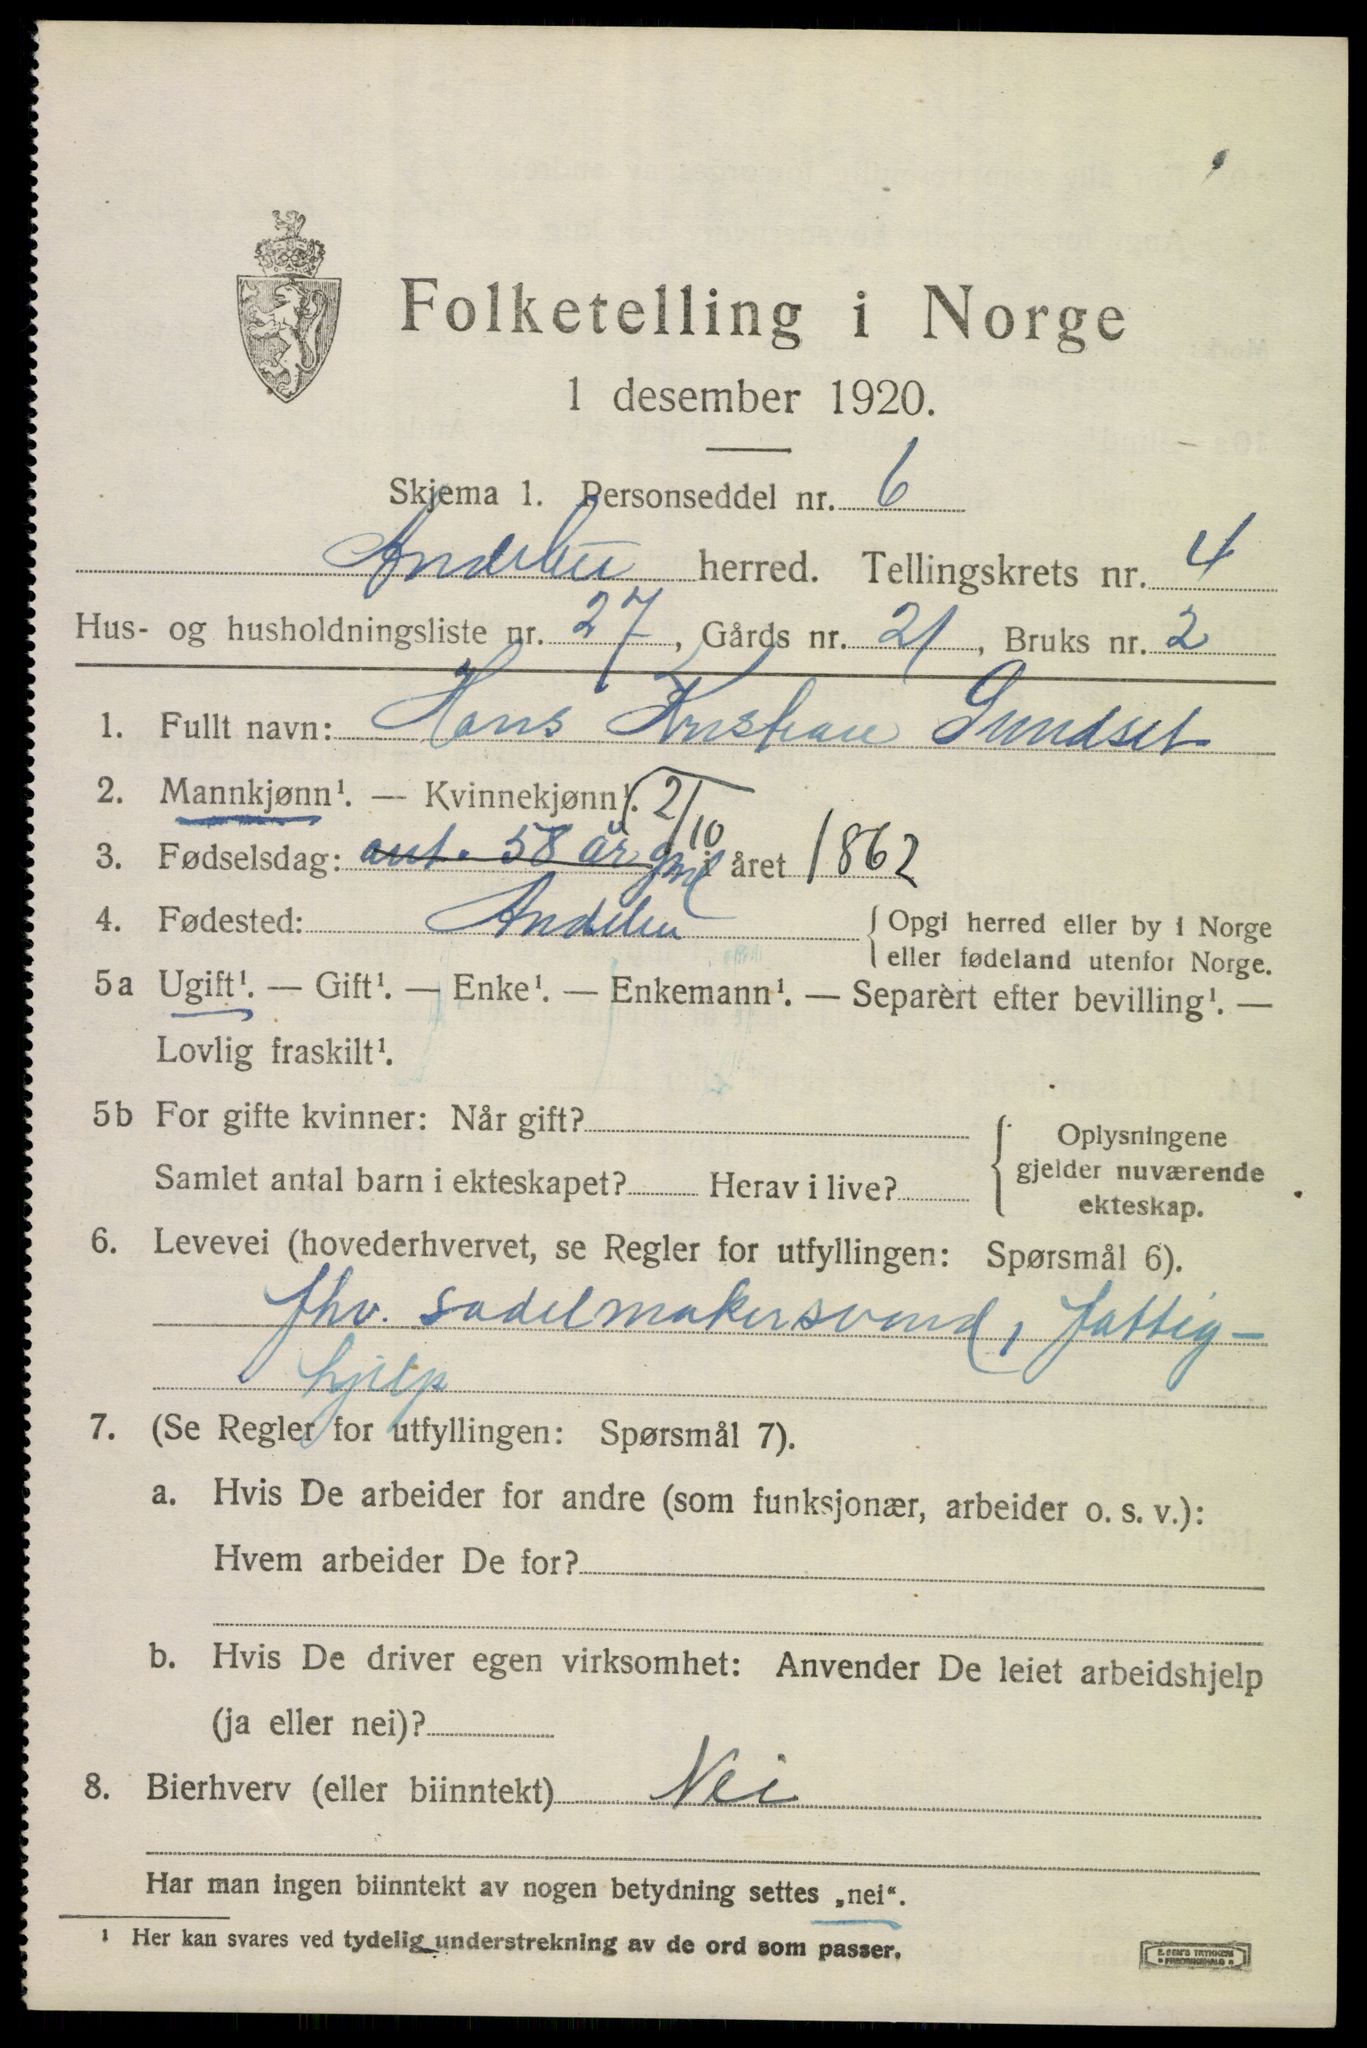 Folketelling i Norge
1 desember 1920.
Skjema 1. Personseddel nr. 6
Andebu herred. Tellingskrets nr. 4
Hus- og husholdningsliste nr. 27, Gårds nr. 21, Bruks nr. 2
1. Fullt navn: Hans Kristian Gundset
2. Mannkjønn¹. — Kvinnekjønn¹. 2/10
3. Fødselsdag: ant. 58 år gml i året 1862
4. Fødested: Andebu { Opgi herred eller by i Norge
eller fødeland utenfor Norge.
5a Ugift¹. — Gift¹. — Enke¹. — Enkemann¹. — Separert efter bevilling¹. —
Lovlig fraskilt¹.
5b For gifte kvinner: Når gift?
Samlet antal barn i ekteskapet? Herav i live?
Oplysningene
gjelder nuværende
ekteskap.
6. Levevei (hovederhvervet, se Regler for utfyllingen: Spørsmål 6).
fhv. sadelmakersvend, fattig-
hjelp
7. (Se Regler for utfyllingen: Spørsmål 7).
a. Hvis De arbeider for andre (som funksjonær, arbeider o. s. v.):
Hvem arbeider De for?
b. Hvis De driver egen virksomhet: Anvender De leiet arbeidshjelp
(ja eller nei)?
8. Bierhverv (eller biinntekt) Nei
Har man ingen biinntekt av nogen betydning settes „nei“.
¹ Her kan svares ved tydelig understrekning av de ord som passer.